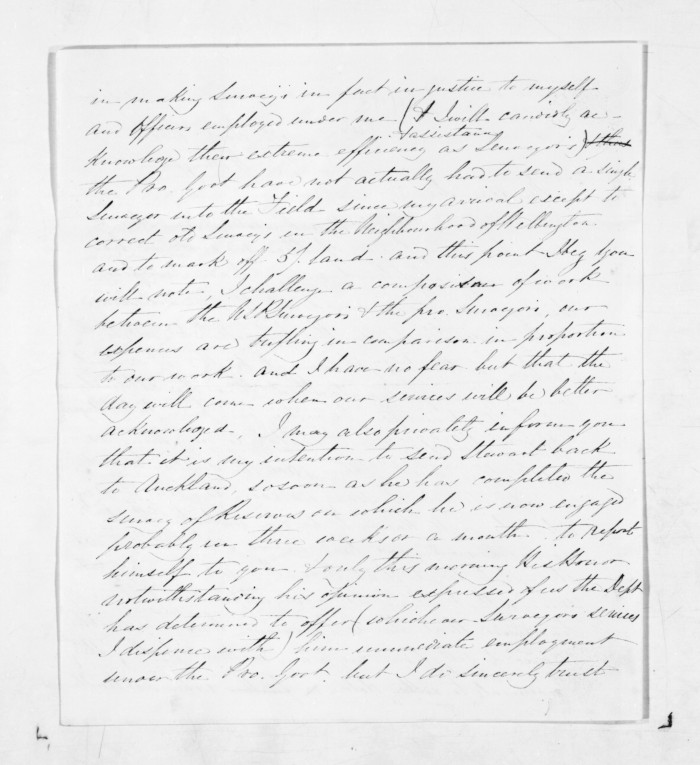 in making Surveys in fact in justice to myself
and Officers employed under me (& I will candidly ac-
assistants
knowledge their extreme efficiency as Surveyors)
the Pro. Govt have not actually had to send a single
Surveyor into the Field since my arrival except to
correct old Surveys in the Neighbourhood of Wellington
and to mark off land. and this point I beg you
will note, I challenge a comparison of work
between the Surveyors & the Pro. Surveyors, our
expences are trifling in comparison in proportion
to our work. and I have no fear but that the
day will come when our services will be better
acknowleged, I may also privately inform you
that it is my intention to send Stewart back
to Auckland, so soon as he has completed the
survey of Reserves on which he is now engaged
probably in three weeks or a month to report
himself to you & only this morning His Honor
notwithstanding his opinion expressed of us the Dept
has determined to offer (whichever Surveyors services
I dispence with) him immediate employment
under the Pro. Govt. but I do sincerely trust